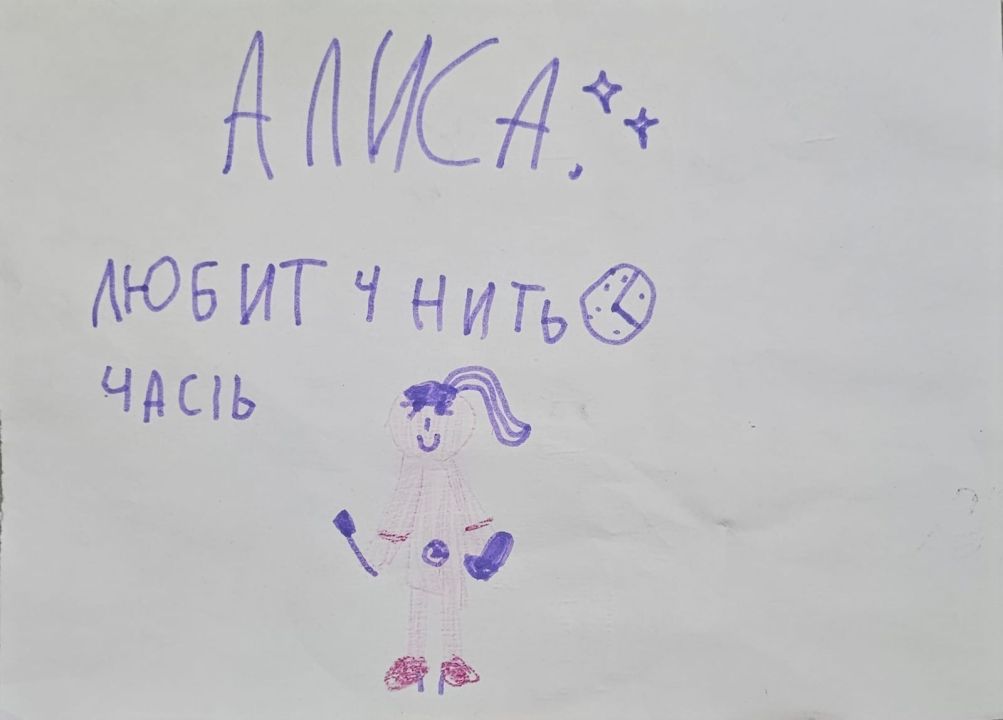 АЛИСА.
ЛЮБИТ ЧНИТЬ
ЧАСЫ